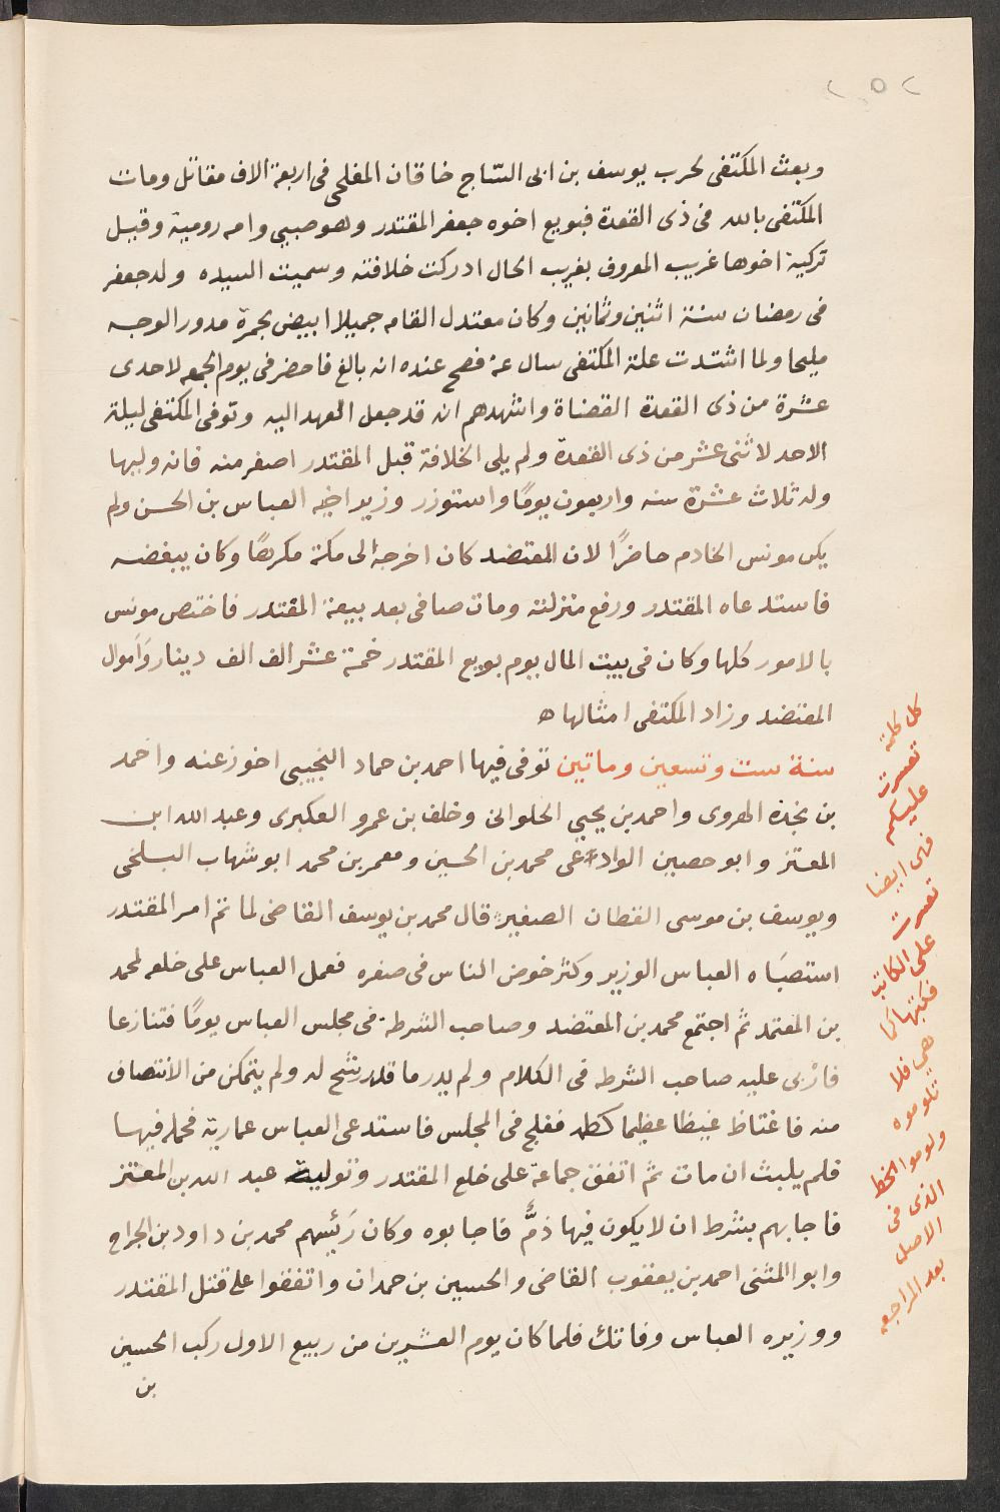 ٢٥٢
وبعث المكتفى لحرب يوسف بن ابى السّاج خاقان المفلحى فى اربعة الاف مقاتل ومات
المكتفى بالله فى ذى القعدة فبويع اخوه جعفر المقتدر وهو صبيى وامه رومية وقيل
تركية اخوها غريب المعروف بغريب الحال ادركت خلافته وسميت السيده ولد جعفر
فى رمضان سنة اثنين وثمانين وكان معتدل القامه جميلا ابيض بحمرة مدور الوجه
مليحا ولما اشتدت علة المكتفى سال عنه فصح عنده انه بالغ فاحضر فى يوم الجمعه لاحدى
عشرة من ذى القعدة القضاة واشهدهم انه قد جعل العهد اليه وتوفى المكتفى ليلة
الاحد لاثنى عشر من ذى القعدة ولم يلى الخلافة قبل المقتدر اصغر منه فانه وليها
وله ثلاث عشرة سنه واربعون يومًا واستوزر وزير اخيه العباس بن الحسن ولم
يكن مونس الخادم حاضرًا لان المعتضد كان اخرجه الى مكة مكرهًا وكان يبغضه
فاستدعاه المقتدر ورفع منزلته ومات صافى بعد بيعة المقتدر فاختص مونس
بالامور كلها وكان فى بيت المال يوم بويع المقتدر خمسة عشر الف الف دينار وَاَموال
المعتضد وزاد المكتفى امثالها ه
سنة ست وتسعين وماتين توفى فيها احمد بن حماد التجيبى اخو زغنه واحمد
بن نجدة الهروى واحمد بن يحيى الحلوانى وخلف بن عمرو العكبرى وعبد الله ابن
المعتز وابو حصين الوادعى محمد بن الحسين ومعمر بن محمد ابو شهاب البلخى
ويوسف بن موسى القطان الصغير قال محمد بن يوسف القاضى لما تم امر المقتدر
استصبَاه العباس الوزير وكثر خوض الناس فى صغره فعمل العباس على خلعه لمحمد
بن المعتمد ثم اجتمع محمد بن المعتضد وصاحب الشرطة فى مجلس العباس يومًا فتنازعا
فاربى عليه صاحب الشرطه فى الكلام ولم يدر ما قد رشح له ولم يتمكن من الانتصاف
منه فاغتاظ غيظا عظيما كظمه ففلج فى المجلس فاستدعى العباس عمارية فحمله فيها
فلم يلبث ان مات ثم اتفق جماعة على خلع المقتدر وتولية عبد الله بن المعتز
فاجابهم بشرط ان لا يكون فيها دمٌ فاجابوه وكان رَئيسهم محمد بن داود بن الجراح
وابوا المثنى احمد بن يعقوب القاضى والحسين بن حمدان واتفقوا على قتل المقتدر
ووزيره العباس وفاتك فلما كان يوم العشرين من ربيع الاول ركب الحسين
بن
كل كلمة
تعسرت
عليكم
فهى ايضا
تعسرت
على الكاتب
فكتبها كما
هى فلا
تلوموه
ولوموا الخط
الذى فى
الاصل
بعد المراجعه